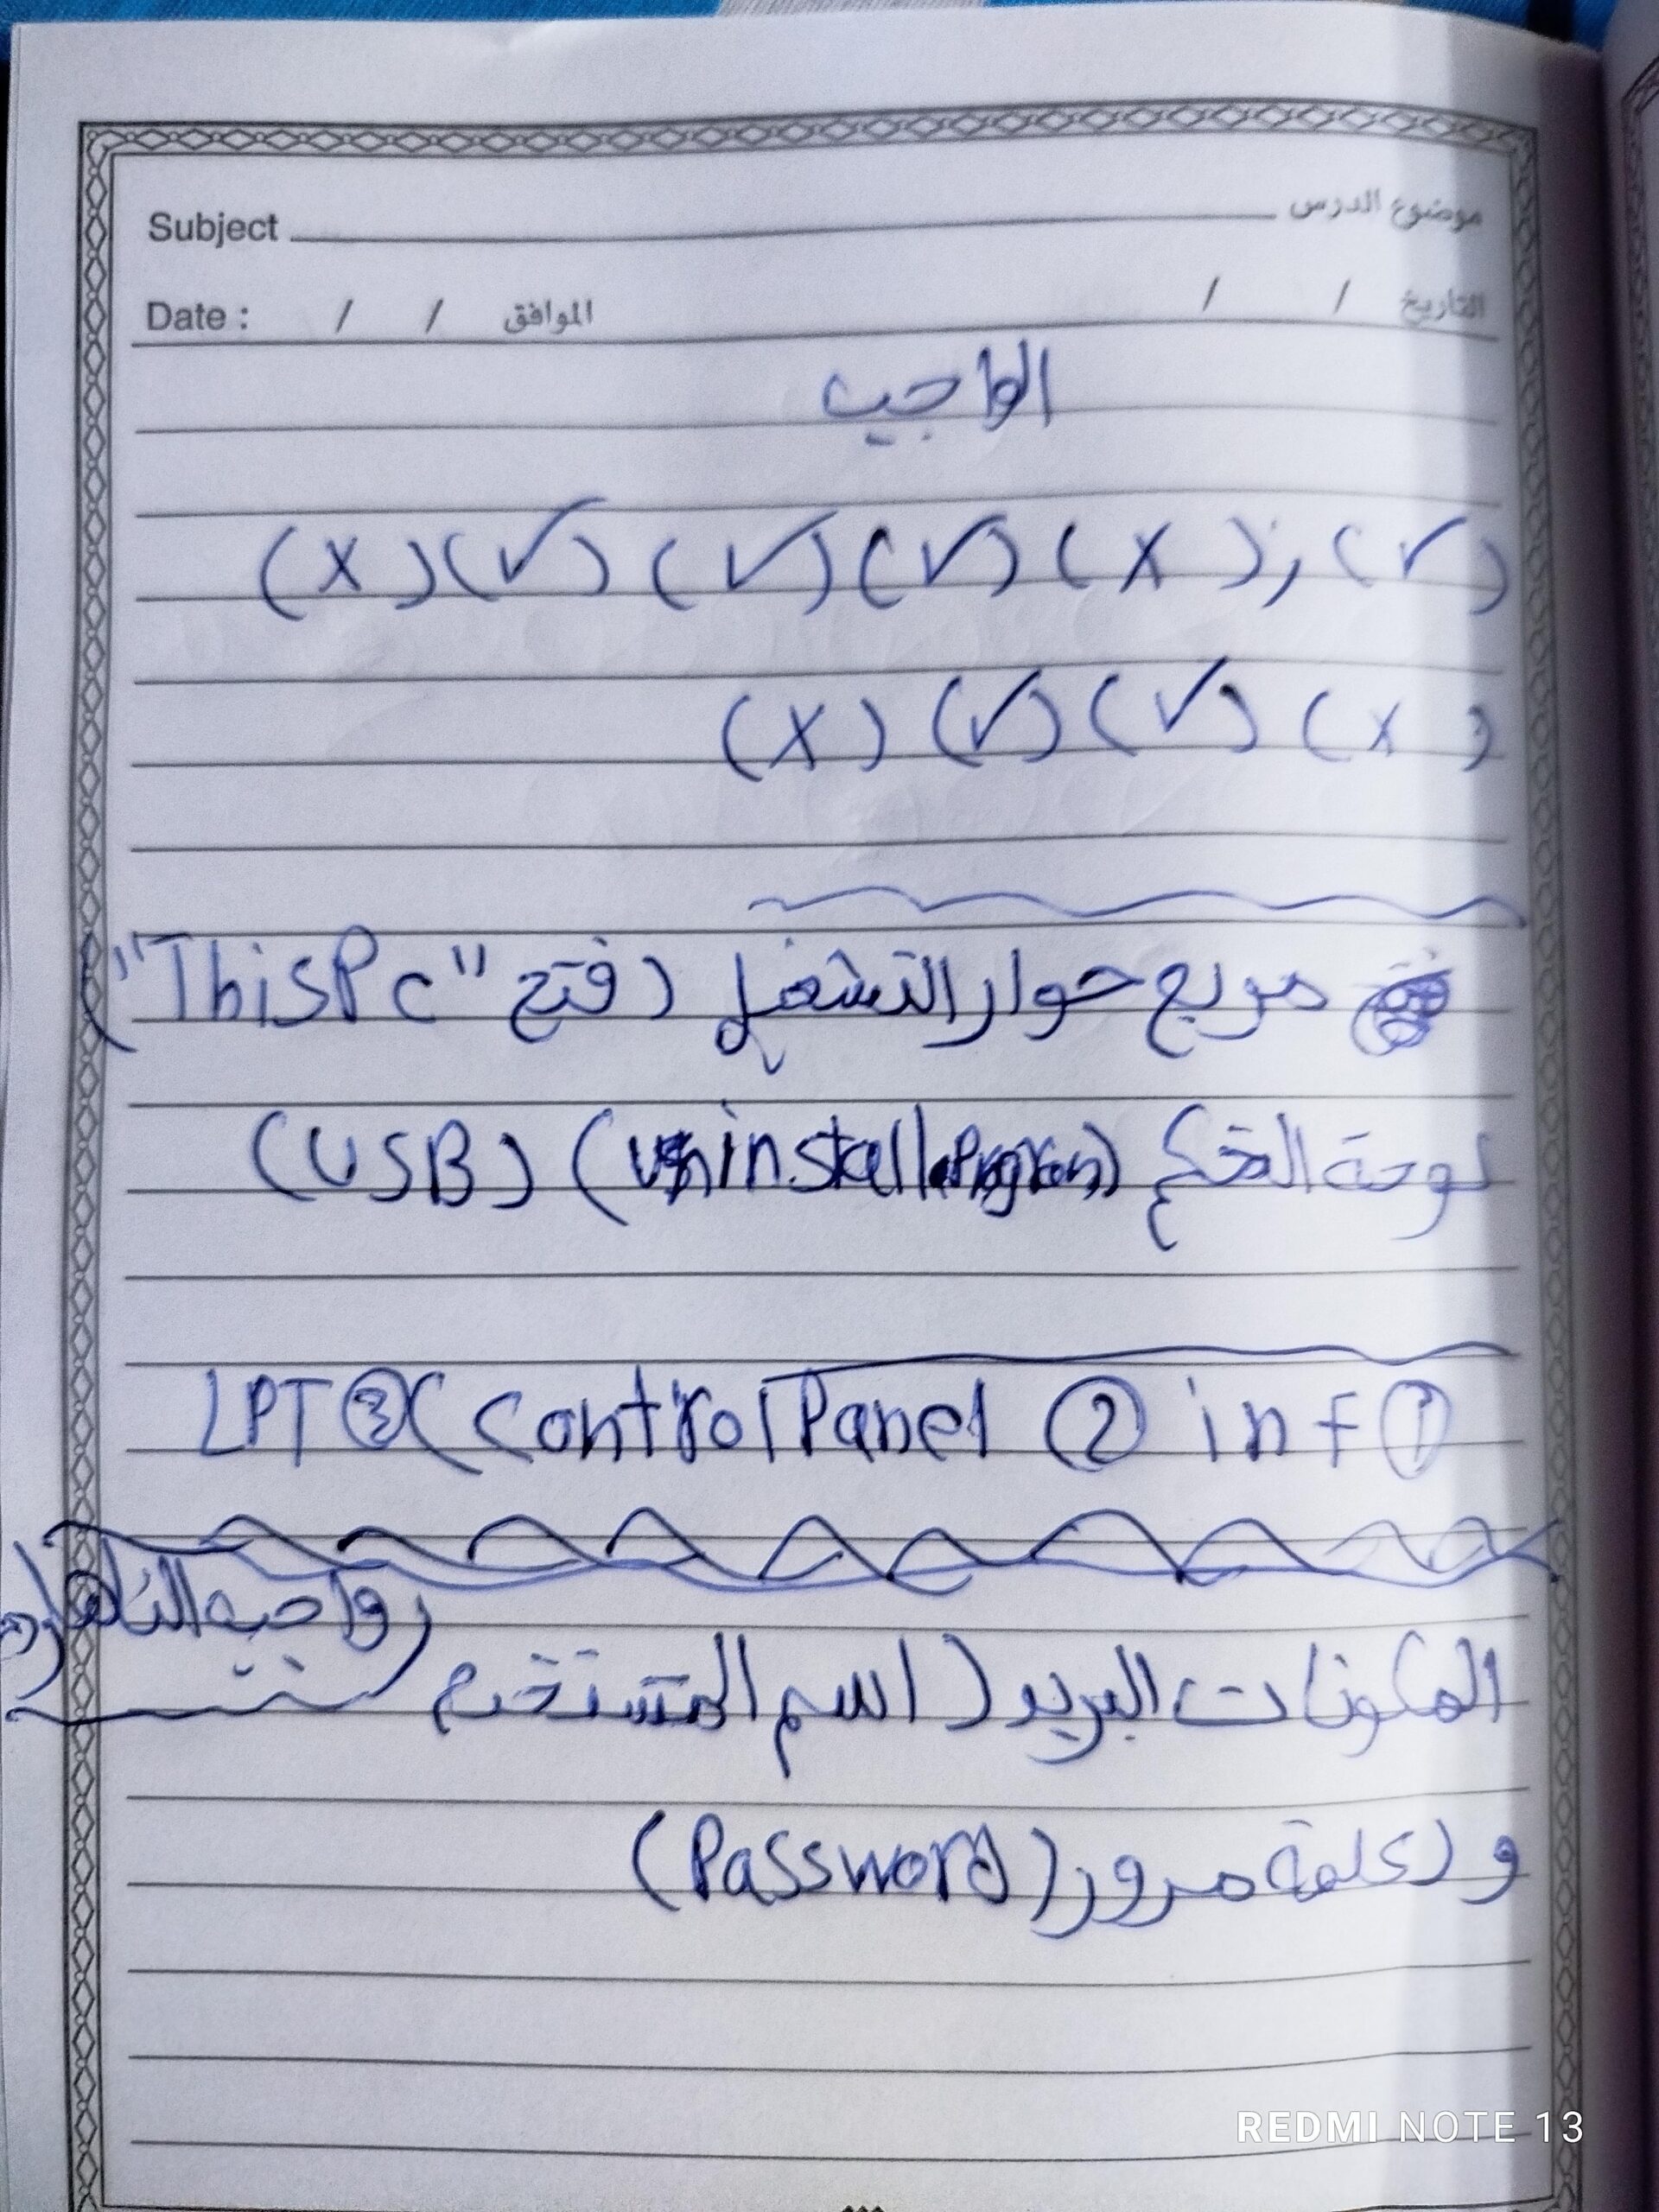 Subject موضوع الدرس
Date : / / الموافق / / التاريخ
الواجب
(✓) , (X) (✓) (✓) (✓) (X)
(X) (✓) (✓) (X)
مربع حوار التشغيل (فتح "This Pc")
لوحة التحكم (Uninstall a Program) (USB)
① inf ② Control Panel) ③ LPT
(واجب
المكونات البريد (اسم المستخدم
و (كلمة مرور (Password)
REDMI NOTE 13